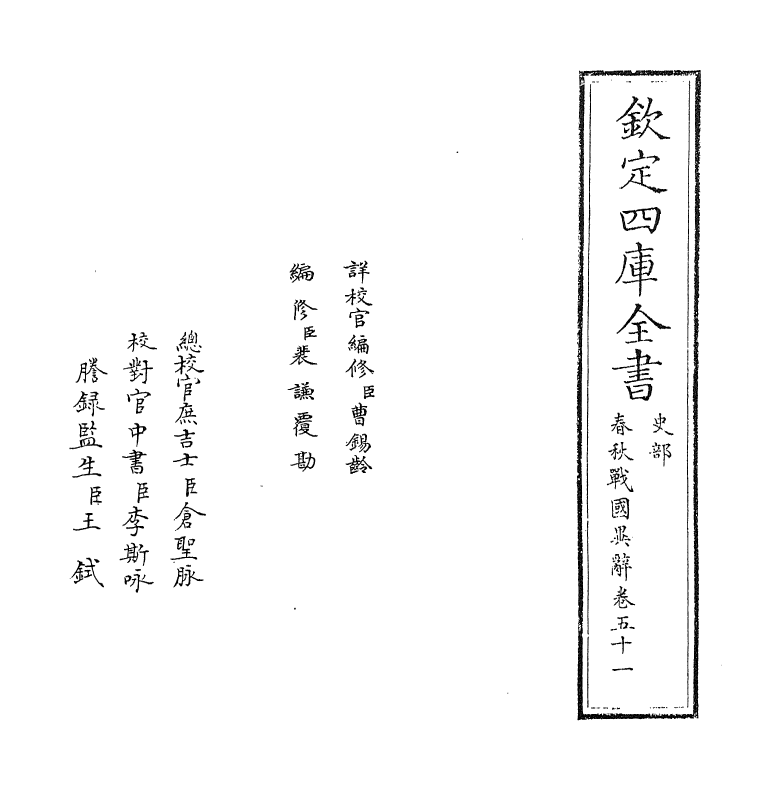 欽定四庫全書
史部
春秋戰國異辭卷五十一
詳校官編修臣曹錫齡
編修臣裴謙覆勘
總校官庶吉士臣倉聖脉
校對官中書臣李斯咏
謄録監生臣王鉽